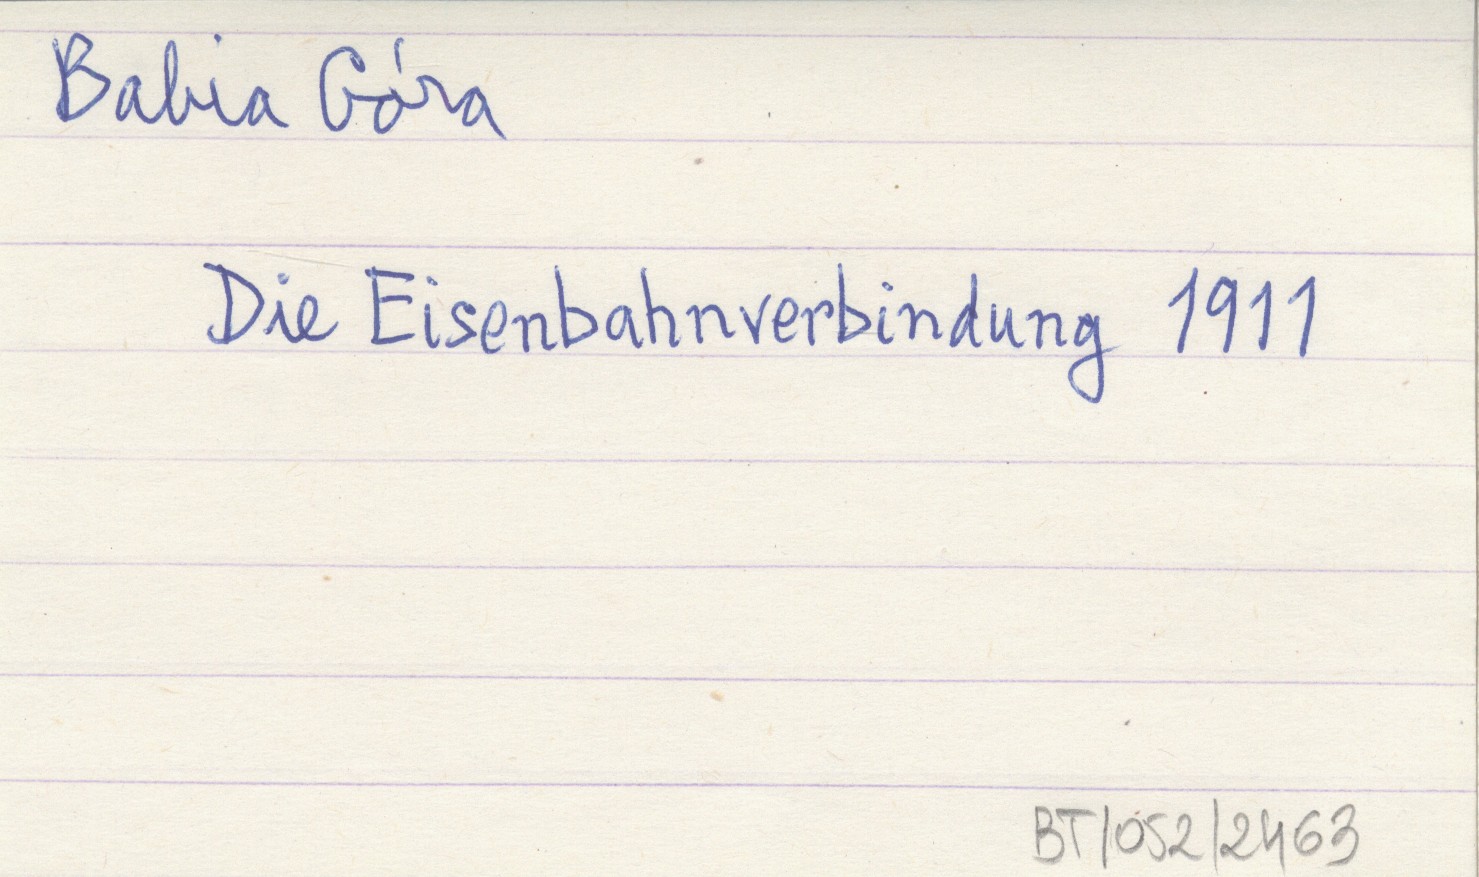 Babia Góra
Die Eisenbahnverbindung 1911
BT/052/2463